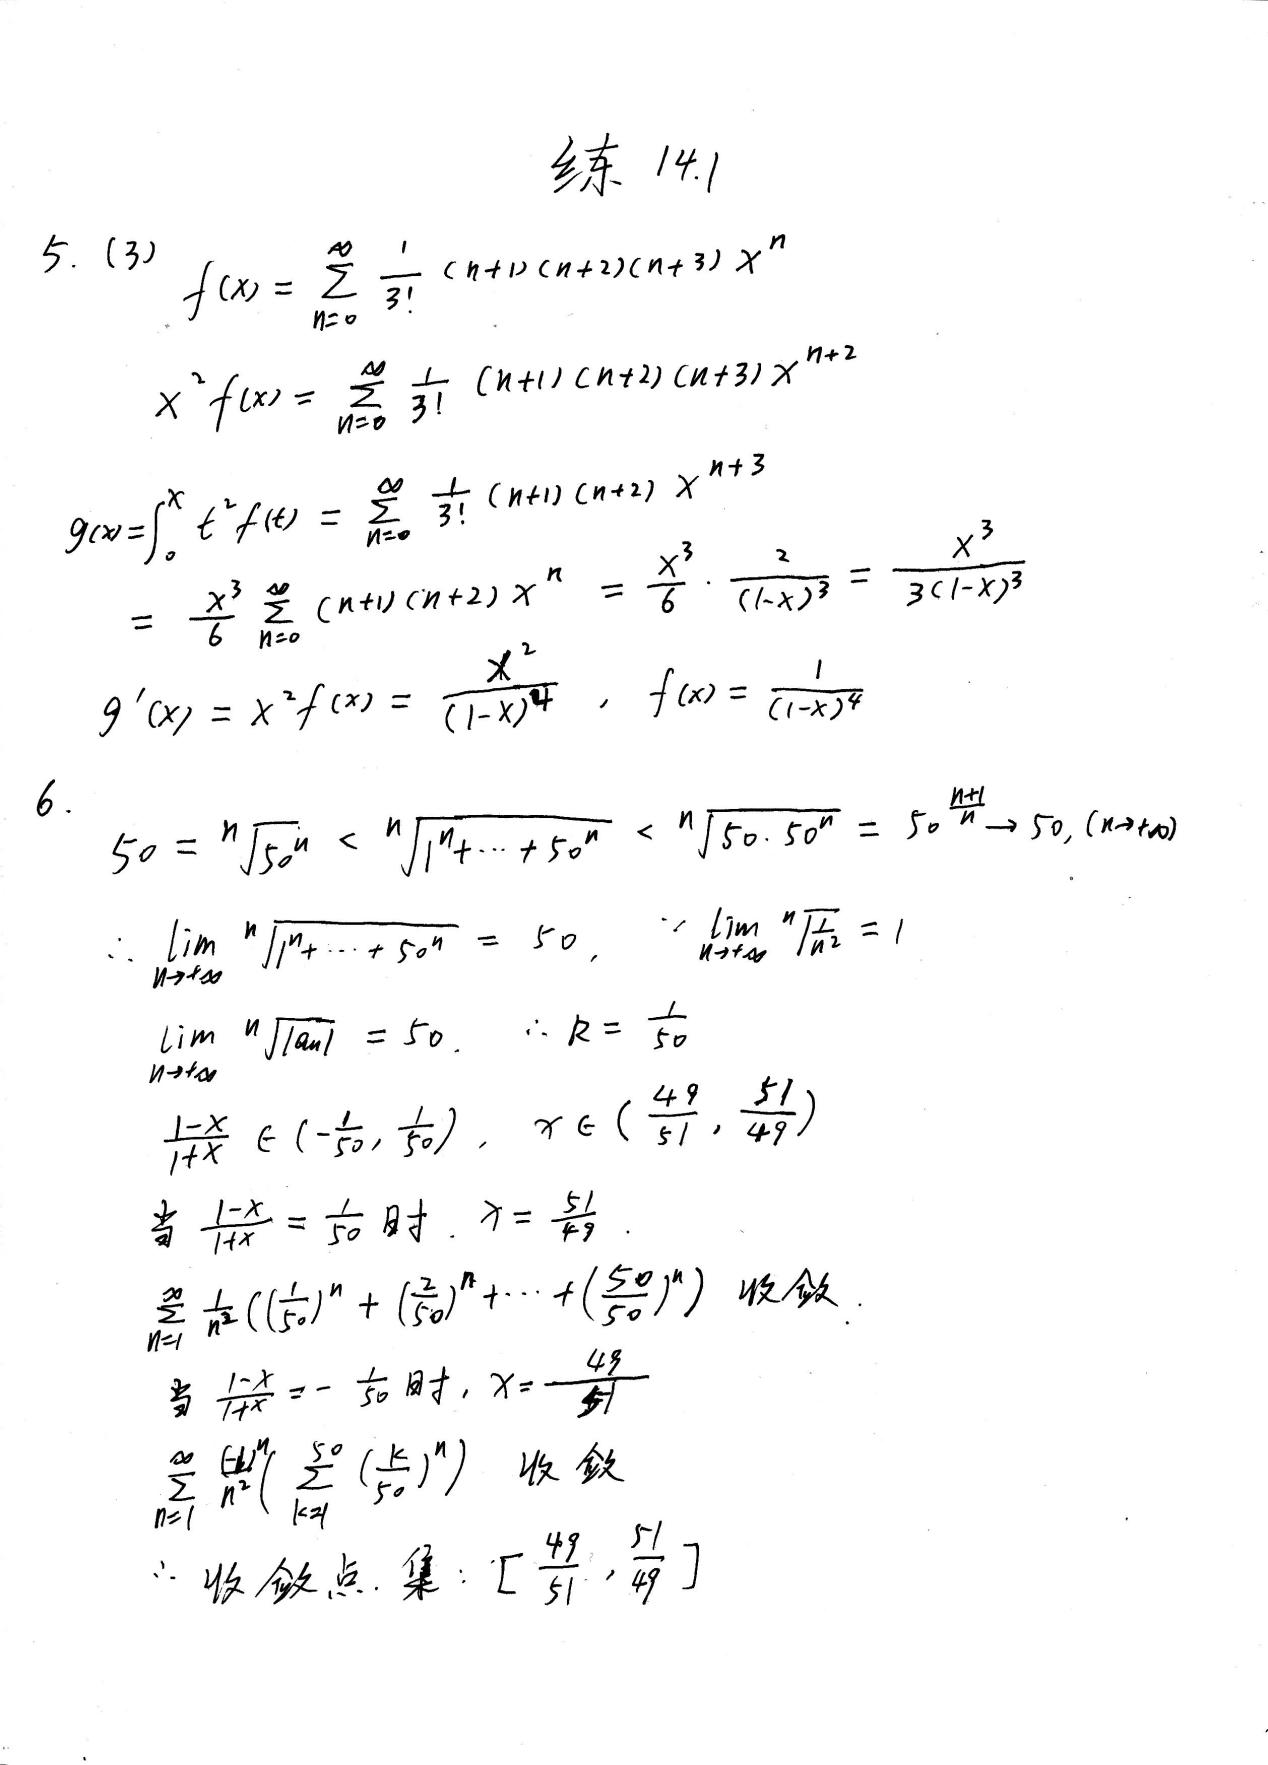 练 14.1
5. (3) f(x) = ∑_{n=0}^{∞} \frac{1}{3!} (n+1)(n+2)(n+3) x^n
x^2 f(x) = ∑_{n=0}^{∞} \frac{1}{3!} (n+1)(n+2)(n+3) x^{n+2}
g(x) = ∫_0^x t^2 f(t) = ∑_{n=0}^{∞} \frac{1}{3!} (n+1)(n+2) x^{n+3}
= \frac{x^3}{6} ∑_{n=0}^{∞} (n+1)(n+2) x^n = \frac{x^3}{6} · \frac{2}{(1-x)^3} = \frac{x^3}{3(1-x)^3}
g'(x) = x^2 f(x) = \frac{x^2}{(1-x)^4} , f(x) = \frac{1}{(1-x)^4}
6. 50 = \sqrt[n]{50^n} < \sqrt[n]{1^n+⋯+50^n} < \sqrt[n]{50·50^n} = 50^{\frac{n+1}{n}} → 50, (n→+∞)
∴ \lim_{n→+∞} \sqrt[n]{1^n+⋯+50^n} = 50, ∵ \lim_{n→+∞} \sqrt[n]{\frac{1}{n^2}} = 1
\lim_{n→+∞} \sqrt[n]{|a_n|} = 50. ∴ R = \frac{1}{50}
\frac{1-x}{1+x} ∈ (-\frac{1}{50}, \frac{1}{50}), x ∈ (\frac{49}{51}, \frac{51}{49})
当 \frac{1-x}{1+x} = \frac{1}{50} 时. x = \frac{51}{49}.
∑_{n=1}^{∞} \frac{1}{n^2} ((\frac{1}{50})^n + (\frac{2}{50})^n + ⋯ + (\frac{50}{50})^n) 收敛.
当 \frac{1-x}{1+x} = -\frac{1}{50} 时, x = \frac{49}{51}
∑_{n=1}^{∞} \frac{(-1)^n}{n^2} (∑_{k=1}^{50} (\frac{k}{50})^n) 收敛
∴ 收敛点集: [\frac{49}{51}, \frac{51}{49}]